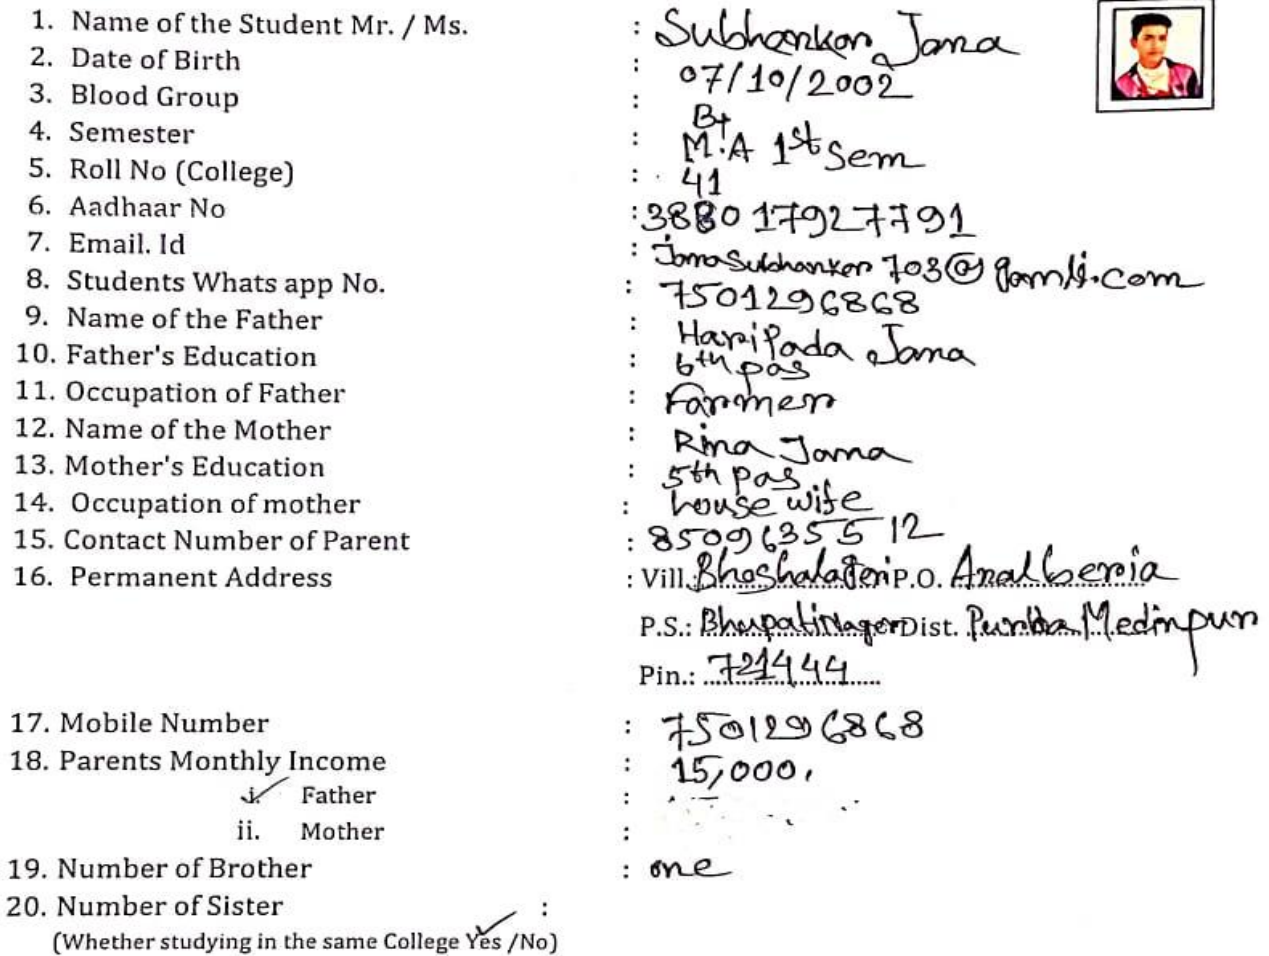 1. Name of the Student Mr. / Ms. : Subhankar Jana
2. Date of Birth : 07/10/2002
3. Blood Group : B+
4. Semester : M.A 1st Sem
5. Roll No (College) : 41
6. Aadhaar No : 3880 17927791
7. Email. Id : JanaSubhankar 703@
8. Students Whats app No. : 7501296868
9. Name of the Father : Haripada Jana
10. Father's Education : 6th pas
11. Occupation of Father : Farmer
12. Name of the Mother : Rina Jana
13. Mother's Education : 5th pas
14. Occupation of mother : house wife
15. Contact Number of Parent : 8509635512
16. Permanent Address : Vill.: P.O. Analberia
P.S.: Bhupatinagar Dist. Purba Medinpur
Pin.: 721444
17. Mobile Number : 7501296868
18. Parents Monthly Income : 15,000.
i. Father :
ii. Mother :
19. Number of Brother : one
20. Number of Sister :
(Whether studying in the same College Yes /No)